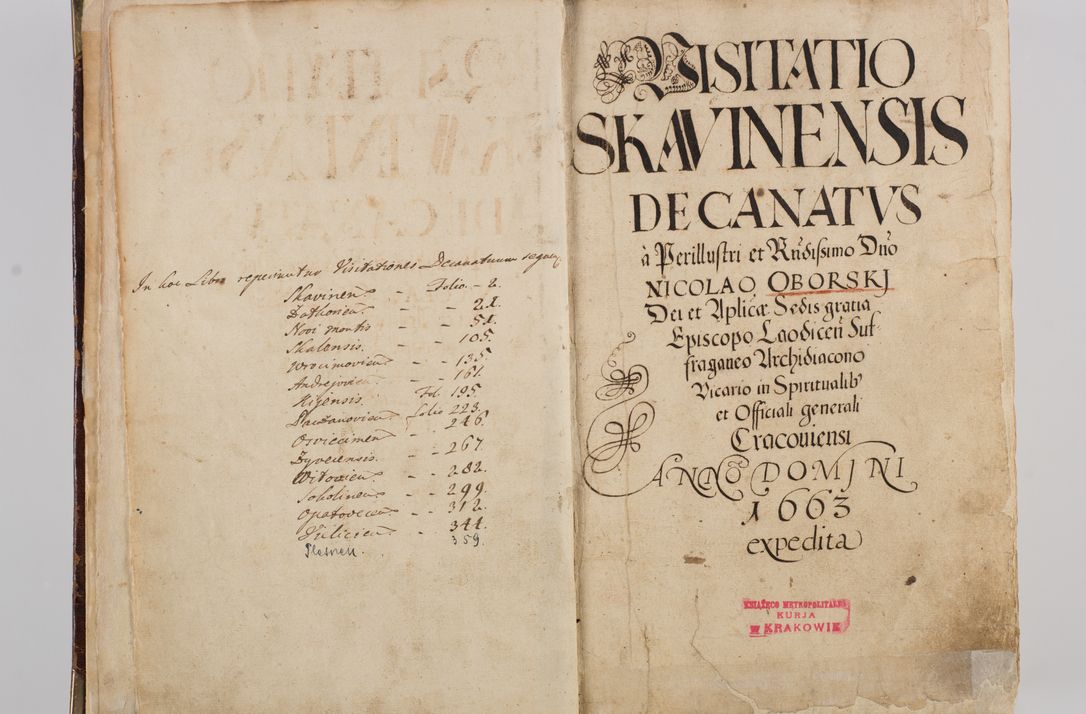 In hoc Libro reperiuntur Visitationes Decanatuum sequen.
Skavinen. - Folio - 2.
Zathorien. - - 21.
Novi montis - - 51.
Skalensis. - 105.
Wrocimovien. - - 135.
Andrejovien. - 161.
Kijensis. Fol. 195.
Pacżanovien. folio 223.
Osviecimen. - 246.
Zyvecensis. - - 267.
Witovien. - - 282.
Sokolinen. - - 299.
Opatovecen. - - 312.
Vulicien. - 344.
359.
VISITATIO
SKAVINENSIS
DECANATVS
à Perillustri et Rñdissimo Dño
NICOLAO OBORSKJ
Dei et Aplicæ Sedis gratia
Episcopo Laodiceñ Suf-
fraganeo Archidiacono
Vicario in Spiritualib9
et Officiali generali
Cracouiensi
ANNO DOMJNI
1663
expedita
KSIĄŻĘCO METROPOLITALNA
KURJA
W KRAKOWIE